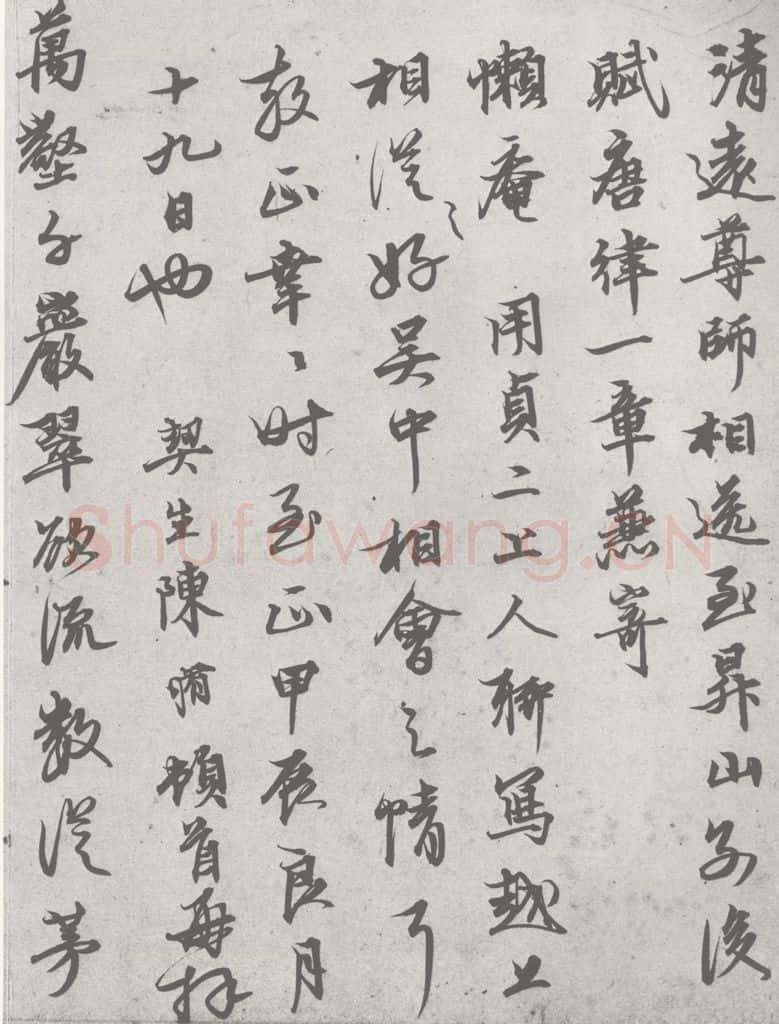 清遠尊師相送至昇山別後
賦唐律一章燕寄
懶庵 用貞二上人聊寫越上
相從之好吴中相會之情丐
教正幸〻时至正甲辰良月
十九日也 契生陳 頓首再拜
萬壑千巖翠欲流數從茅
Shufawang.CN